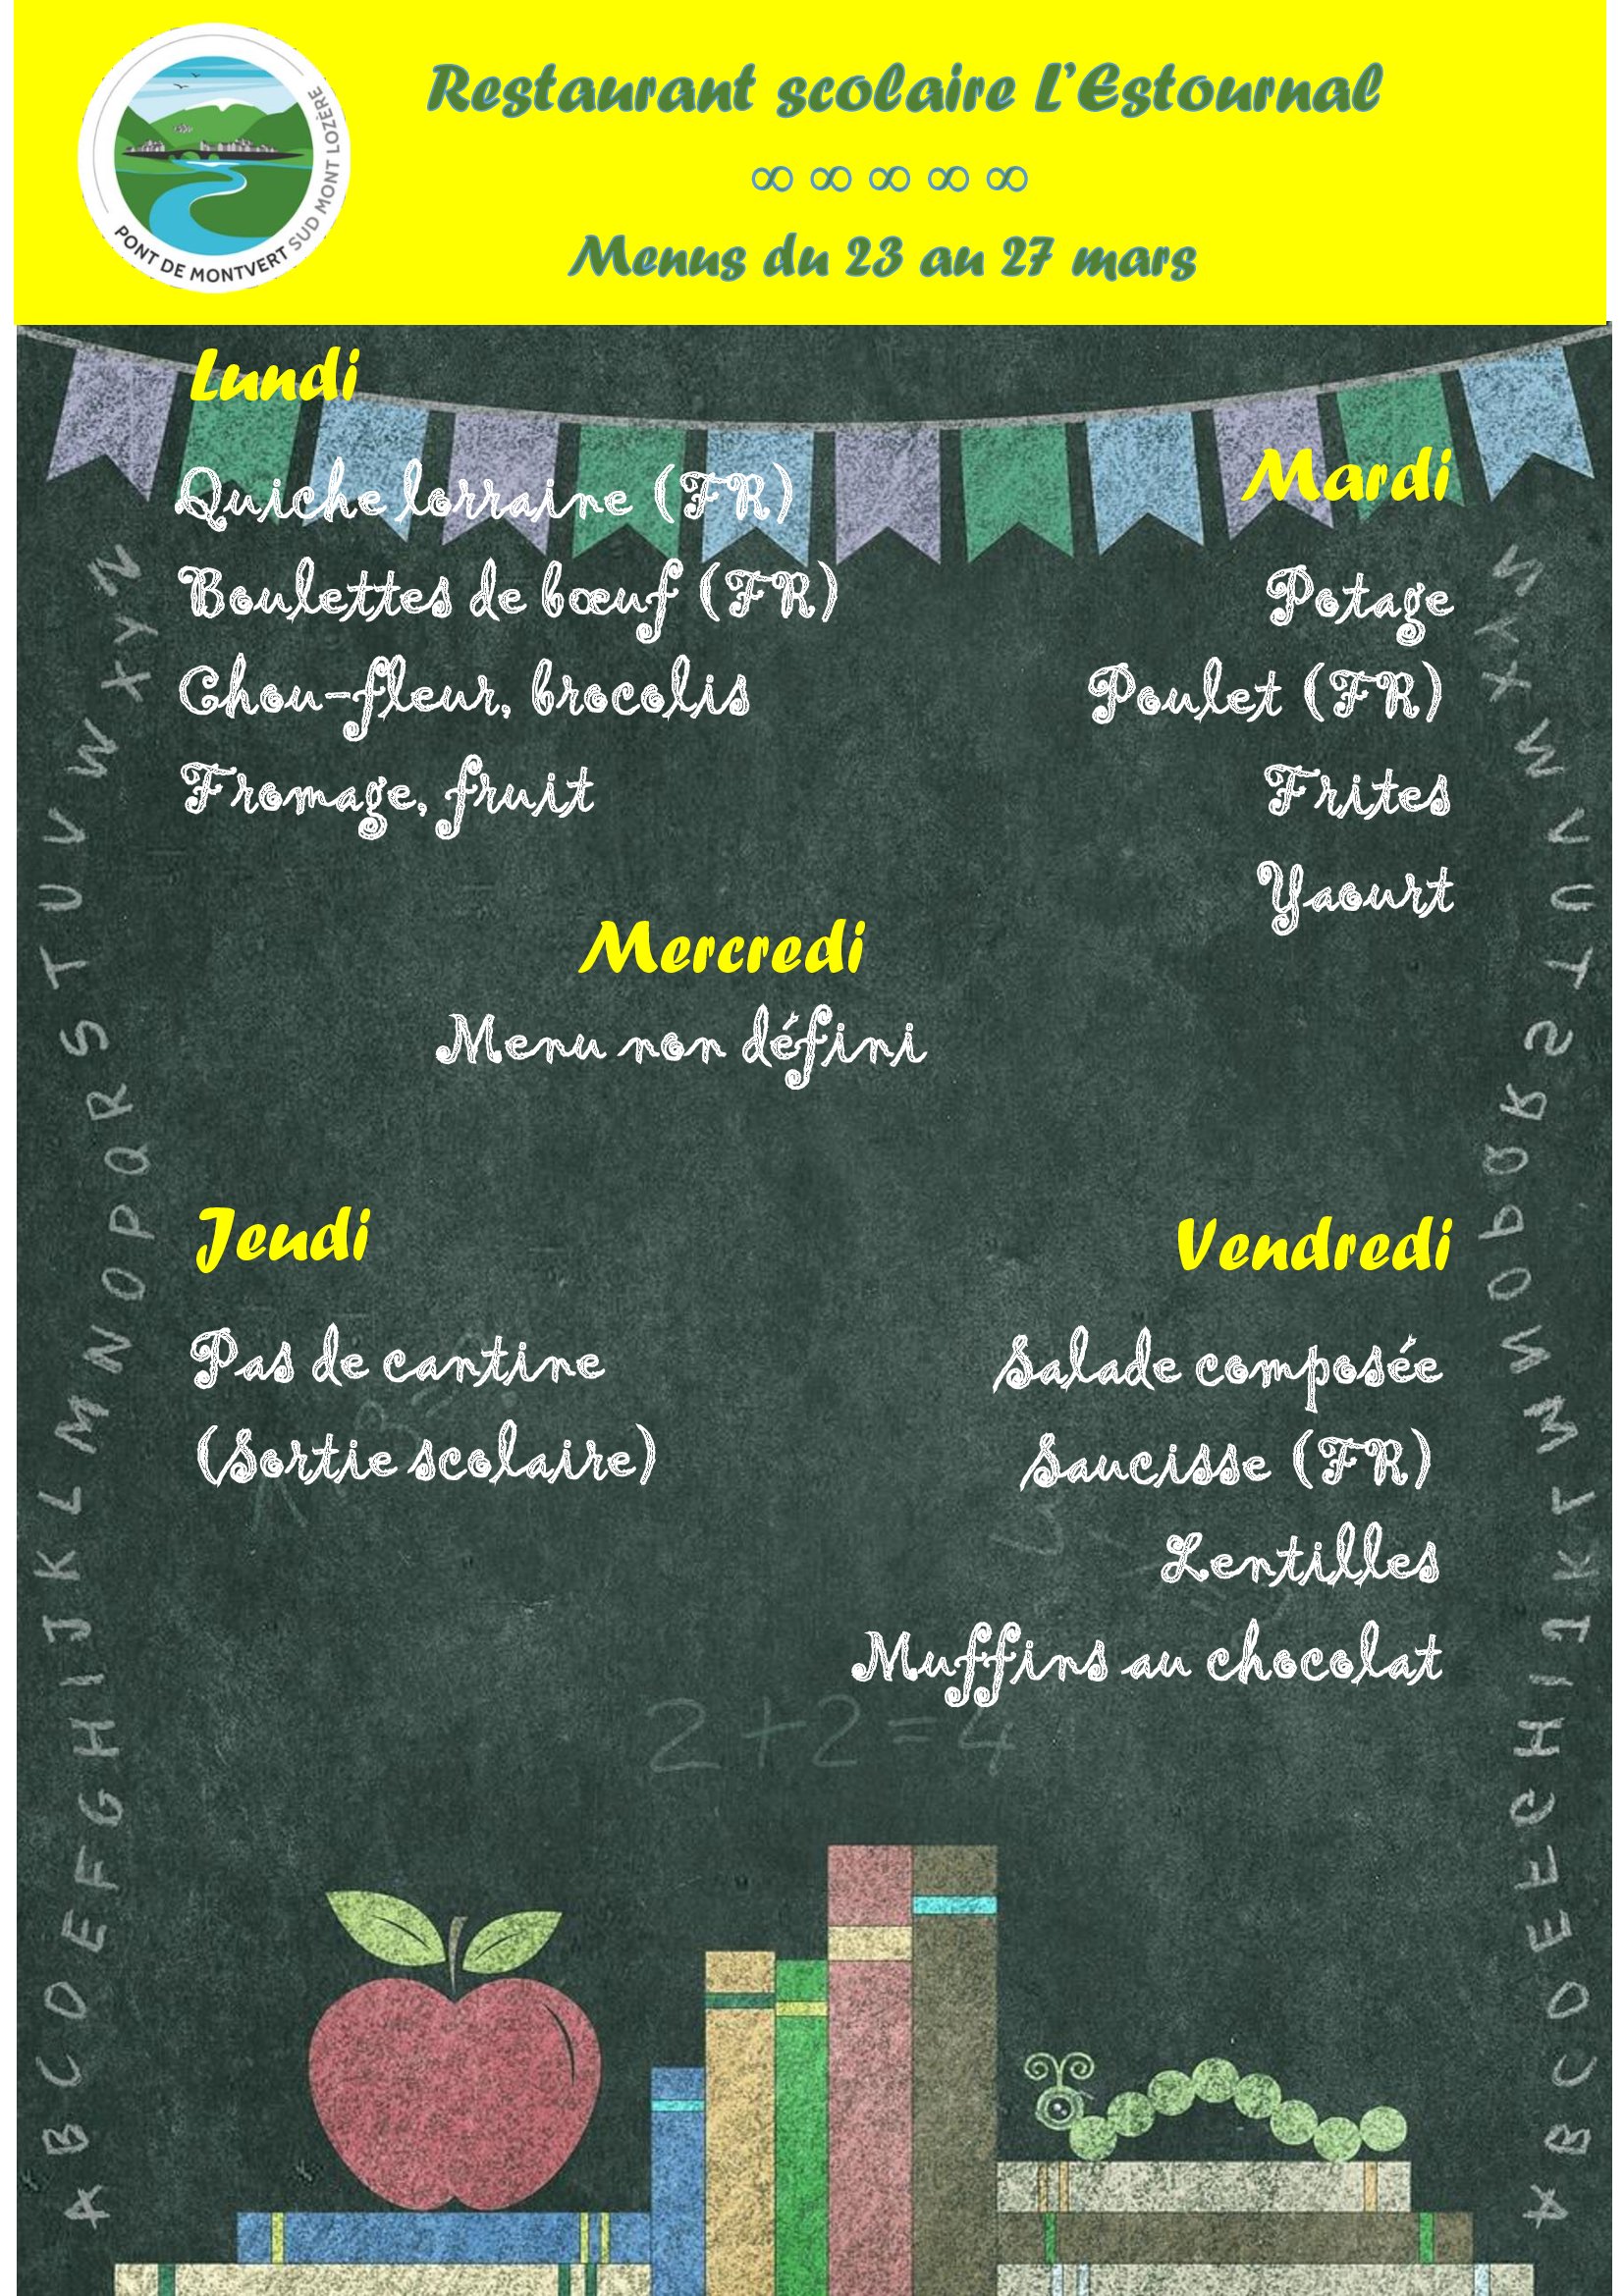 Restaurant scolaire L’Estournal
∞ ∞ ∞ ∞ ∞
Menus du 23 au 27 mars
PONT DE MONTVERT SUD MONT LOZÈRE
Lundi
Quiche lorraine (FR)
Boulettes de bœuf (FR)
Chou-fleur, brocolis
Fromage, fruit
Mardi
Potage
Poulet (FR)
Frites
Yaourt
Mercredi
Menu non défini
Jeudi
Pas de cantine
(Sortie scolaire)
Vendredi
Salade composée
Saucisse (FR)
Lentilles
Muffins au chocolat
2+2=4
A B C D E F G H I J K L M N O P Q R S T U V W X Y Z